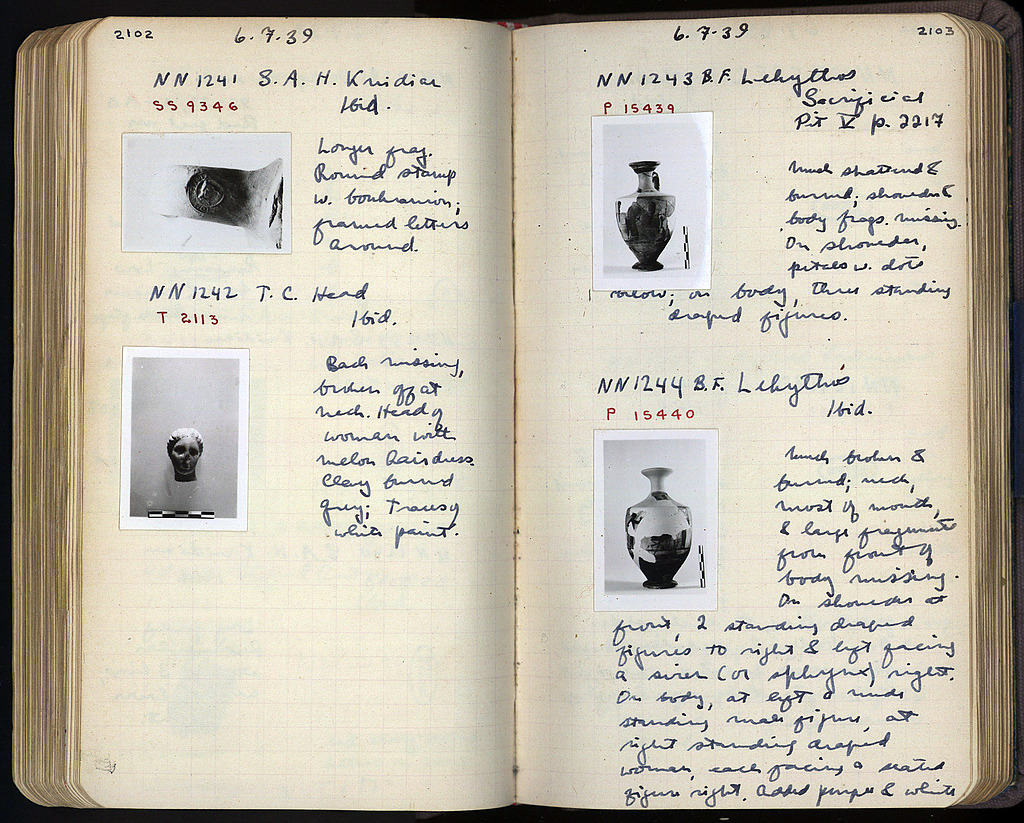 2102
6.7.39
NN 1241 S.A.H. Knidian
SS 9346 Ibid.
Longer frag.
Round stamp
w. boukranion;
framed letters
around.
NN 1242 T.C. Head
T 2113 Ibid.
Back missing,
broken off at
neck. Head of
woman with
melon hairdress.
Clay burned
grey; traces of
white paint.
6.7.39
2103
NN 1243 B.F. Lekythos
P 15439 Sacrificial
Pit V p. 2217
Much shattered &
burned; shoulder &
body frags. missing.
On shoulder,
petals w. dots
below; on body, three standing
draped figures.
NN 1244 B.F. Lekythos
P 15440 Ibid.
Much broken &
burned; neck,
most of mouth,
& large fragments
from front of
body missing.
On shoulder at
front, 2 standing draped
figures to right & left facing
a siren (or sphynx) right.
On body, at left a nude
standing male figure, at
right standing draped
woman, each facing a seated
figure right. Added purple & white